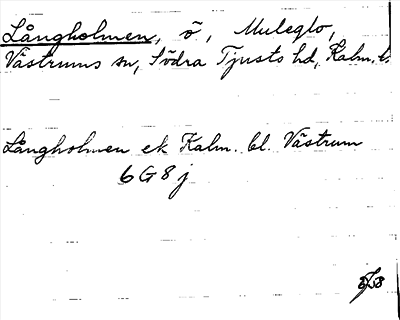 Långholmen, ö, Muleglo,
Västrums sn, Södra Tjusts hd, Kalm. l.
Långholmen ek Kalm. bl. Västrum
6 G 8 j